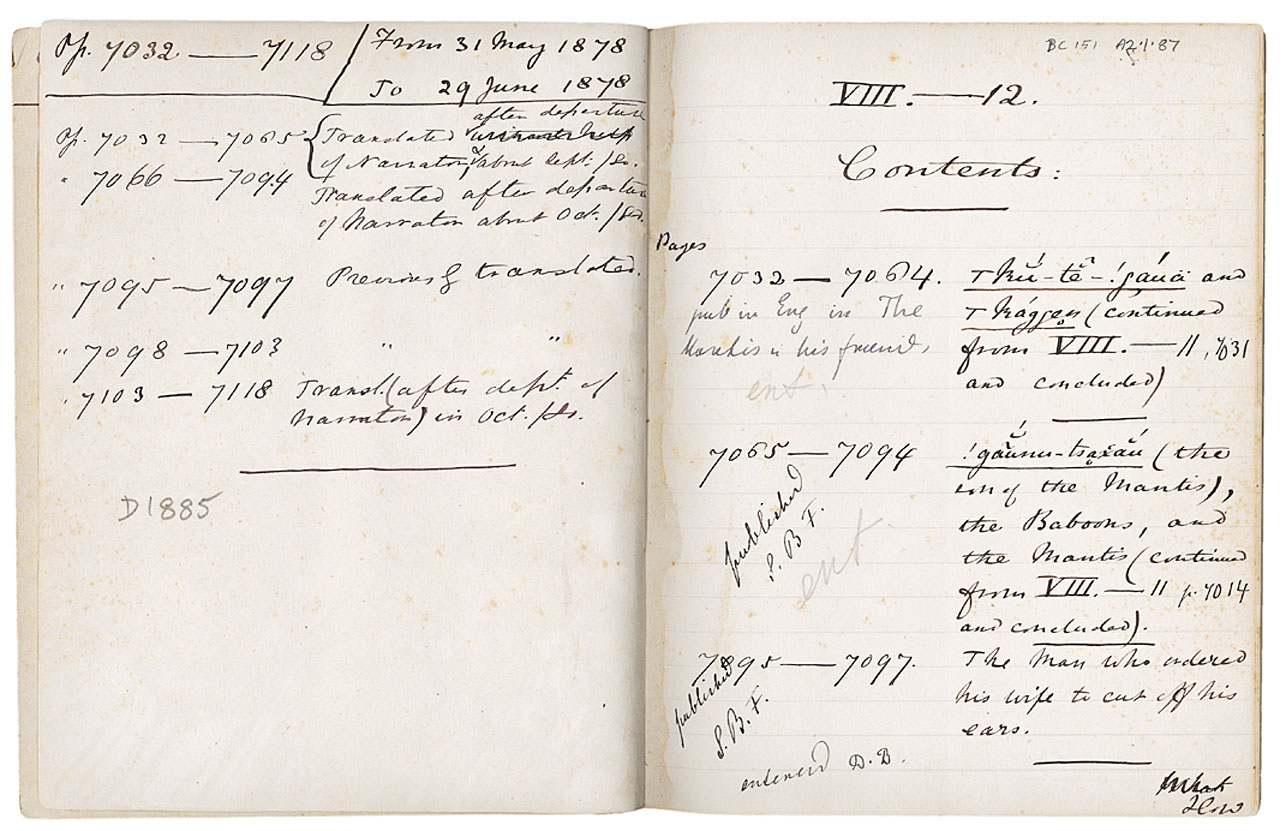 Pp. 7032 — 7118
From 31 May 1878
To 29 June 1878
after departure
Pp. 7032 — 7065 { Translated
of Narrator, about Sept: /80.
" 7066 — 7094
Translated after departure
of Narrator about Oct. /80.
" 7095 — 7097 Previously translated.
" 7098 — 7103 " "
" 7103 — 7118 Transl. (after dept. of
Narrator) in Oct. /80.
D1885
BC 151 A2.1.87
VIII. — 12.
Contents:
Pages
7032 — 7064.
and
pub in Eng in The
(continued
Mantis & his friends
from VIII. — 11, 7031
ent.
and concluded)
7065 — 7094
(the
son of the Mantis),
published
S. B. F.
the Baboons, and
ent.
the Mantis (continued
from VIII. — 11 p. 7014
and concluded).
7095 — 7097.
The Man who ordered
published
S. B. F.
his wife to cut off his
ears.
entered D. B.
What
How